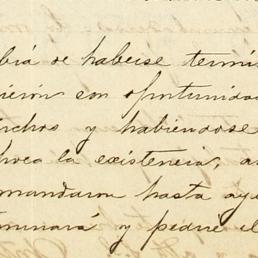 bia de haberse termi
ieron con oportunida
nchos y habiendose
hoco la existencia, a
mandaron hasta ay
minará y pedré el